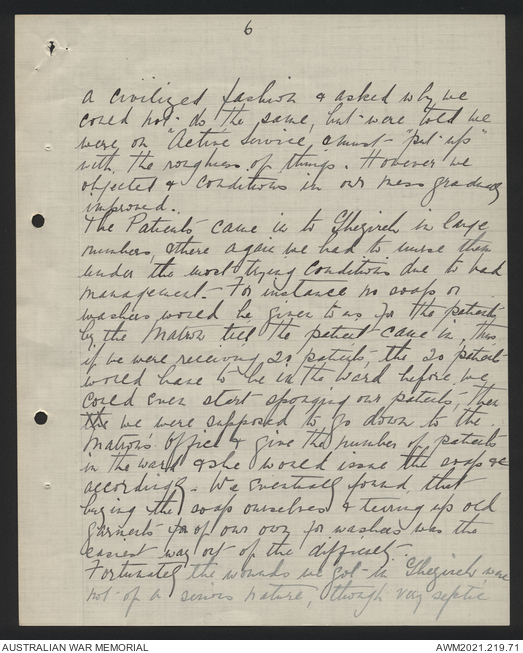 6
a civilized fashion & asked why we
could not do the same, but were told we
were on "Active Service, & must "put up"
with the roughness of things. However we
objected & conditions in our mess gradually
improved.
The Patients came in to Ghezireh in large
numbers, & there again we had to nurse them
under the most trying conditions due to bad
management. - For instance no soap or
washers would be given to us for the patients
by the Matron till the patient came in, thus
if we were receiving 20 patients, the 20 patients
would have to be in the ward before we
could even start sponging our patients, then
the we were supposed to go down to the
Matron's Office & give the number of patients
in the ward & she would issue the soap &c
accordingly. We eventually found that
buying the soap ourselves & tearing up old
garments for of our own for washers was the
easiest way out of the difficulty.
Fortunately the wounds we got in Ghezireh were
not of a serious nature, though very septic
AUSTRALIAN WAR MEMORIAL
AWM2021.219.71